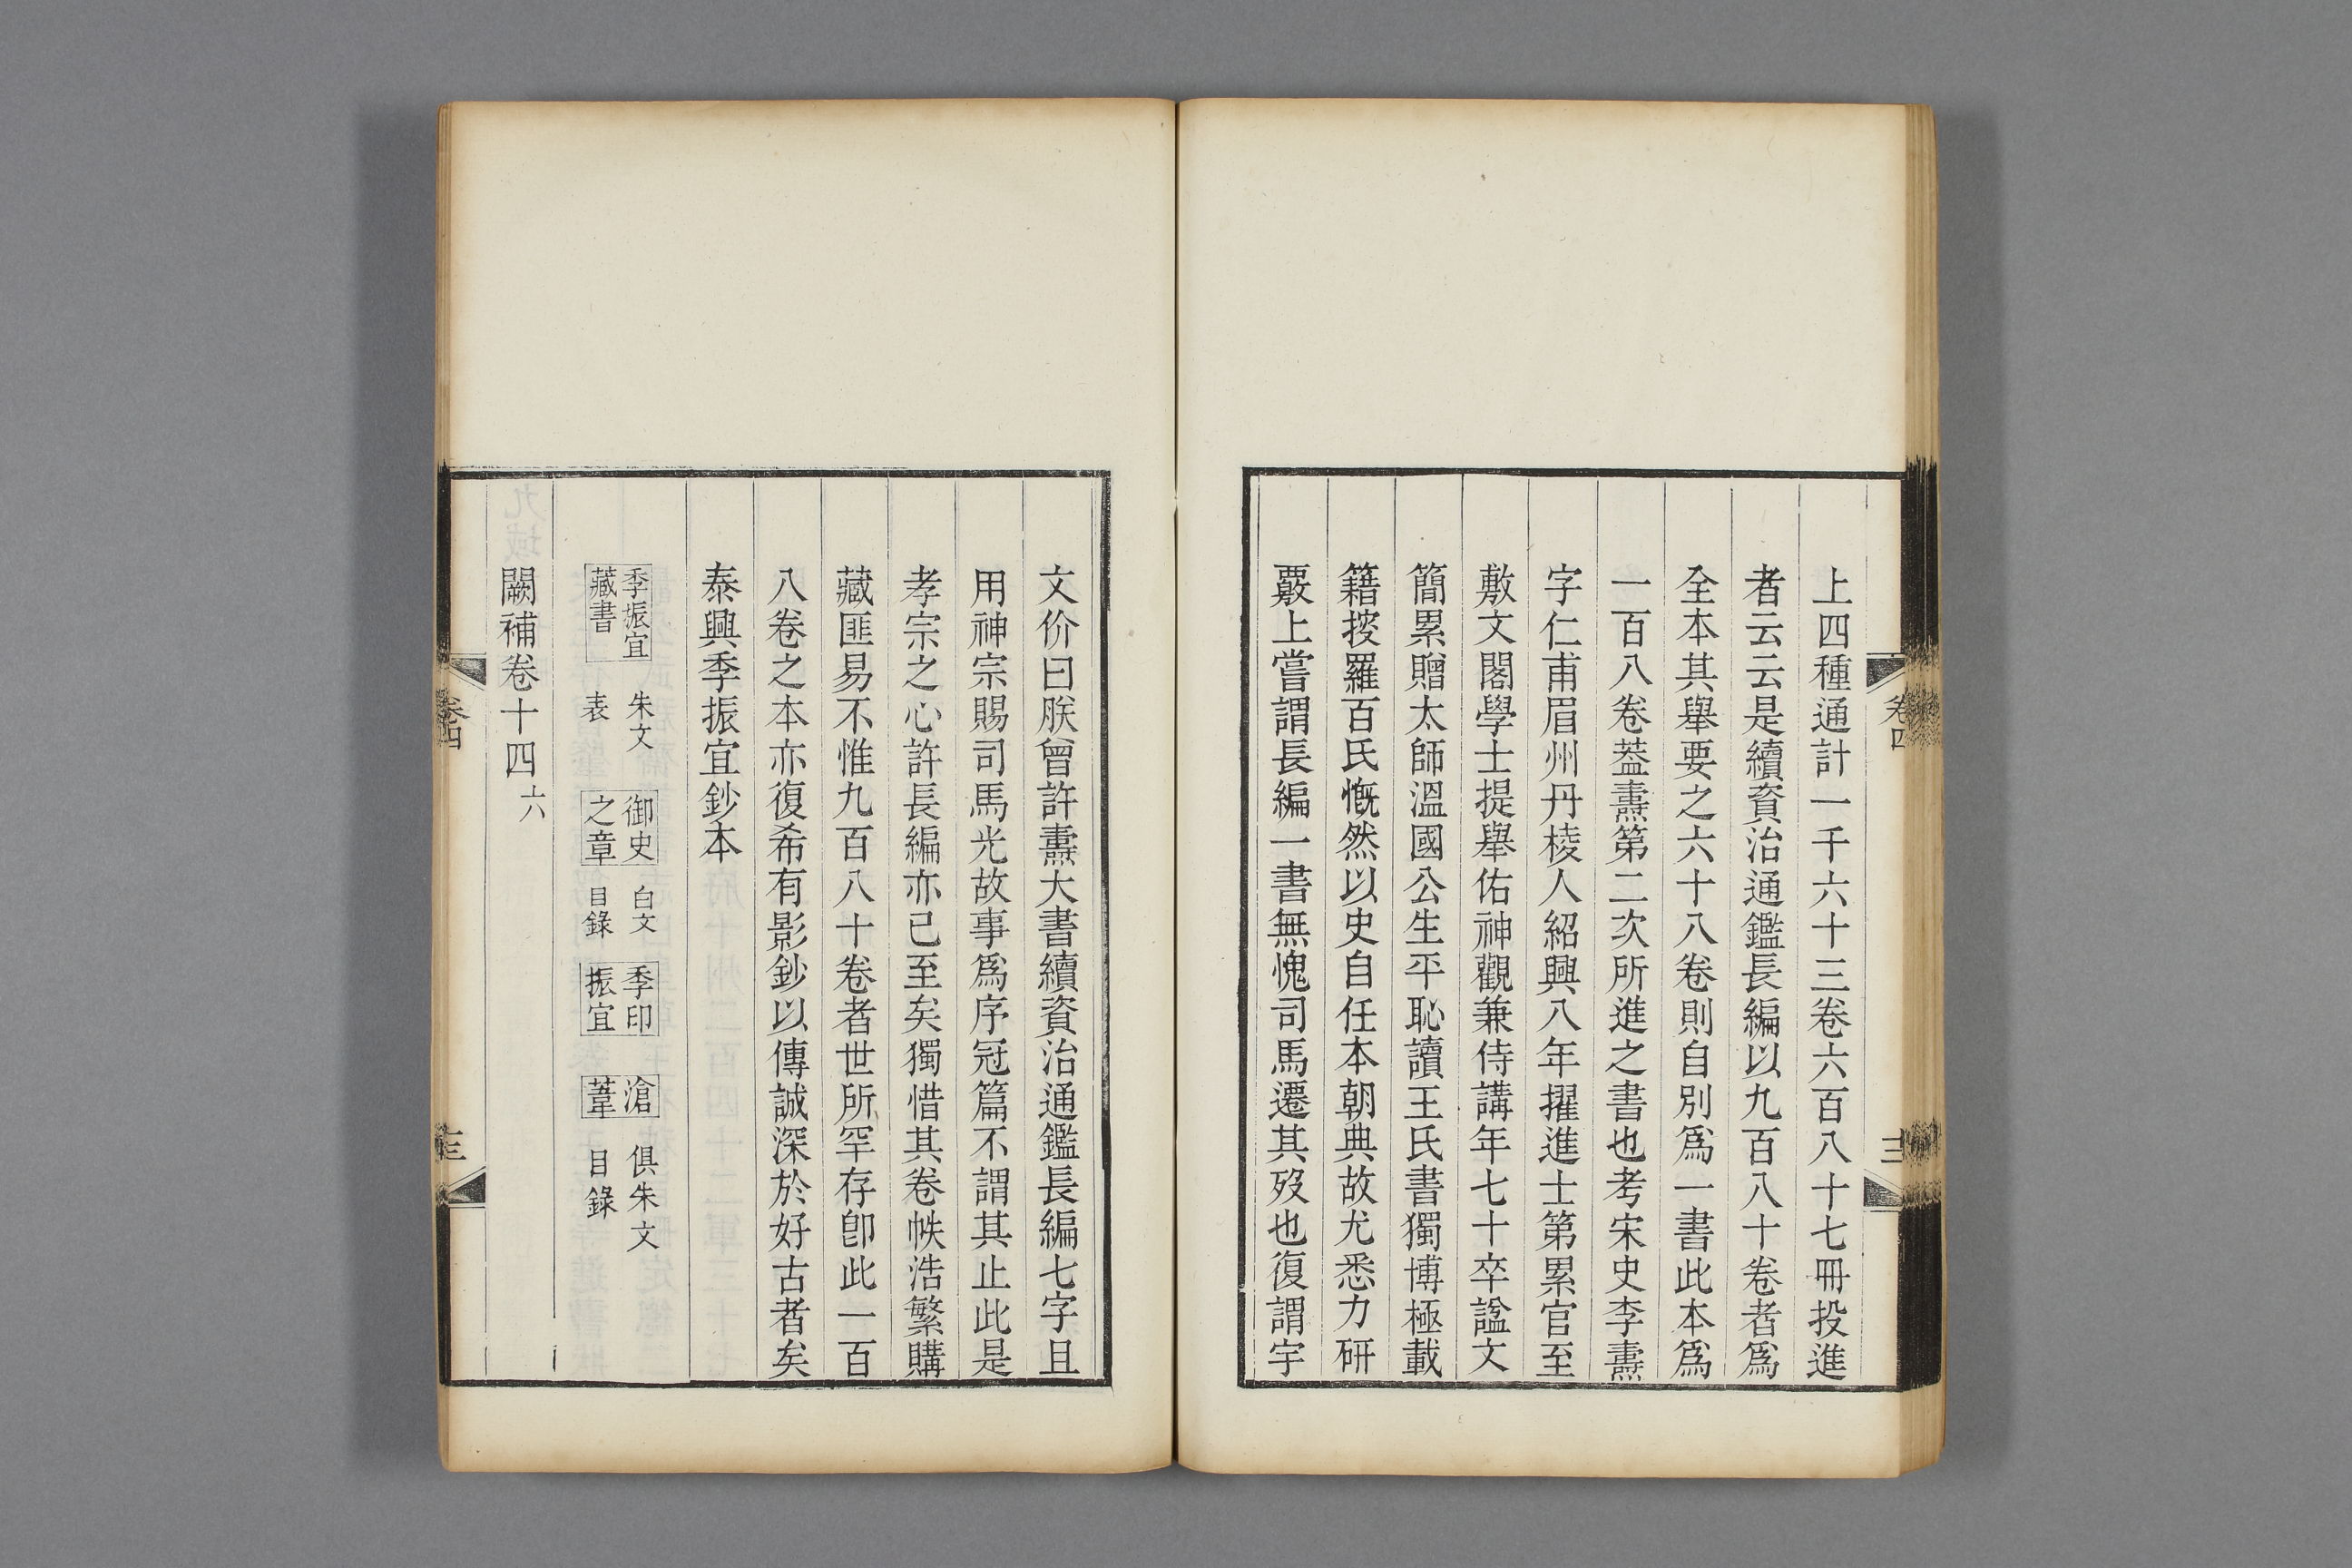 上四種通計一千六十三卷六百八十七冊投進
者云云是續資治通鑑長編以九百八十卷者爲
全本其舉要之六十八卷則自別爲一書此本爲
一百八卷葢燾第二次所進之書也考宋史李燾
字仁甫眉州丹棱人紹興八年擢進士第累官至
敷文閣學士提舉佑神觀兼侍講年七十卒諡文
簡累贈太師溫國公生平恥讀王氏書獨博極載
籍按羅百氏慨然以史自任本朝典故尤悉力研
覈上嘗謂長編一書無愧司馬遷其歿也復謂宇
文价曰朕曾許燾大書續資治通鑑長編七字且
用神宗賜司馬光故事爲序冠篇不謂其止此是
孝宗之心許長編亦已至矣獨惜其卷帙浩繁購
藏匪易不惟九百八十卷者世所罕存卽此一百
八卷之本亦復希有影鈔以傳誠深於好古者矣
泰興季振宜鈔本
季振宜
藏書
朱文
表
御史
之章
白文
目錄
季印
振宜
滄
葦
俱朱文
目錄
闕補卷十四
十六
卷四
卷四